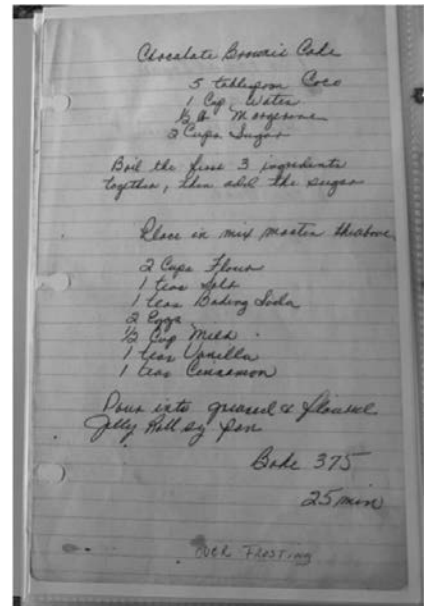 Chocolate Brownie Cake
5 tablespoon Coco
1 Cup Water
½ lb Margerine
2 Cups Sugar
Boil the first 3 ingredients
together, then add the sugar
Place in mix master the above
2 Cups Flour
1 teas Salt
1 teas Baking Soda
2 Eggs
½ Cup Milk
1 teas Vanilla
1 teas Cinnamon
Pour into greased & floured
Jelly Roll sz pan
Bake 375
25 min
OVER FROSTING